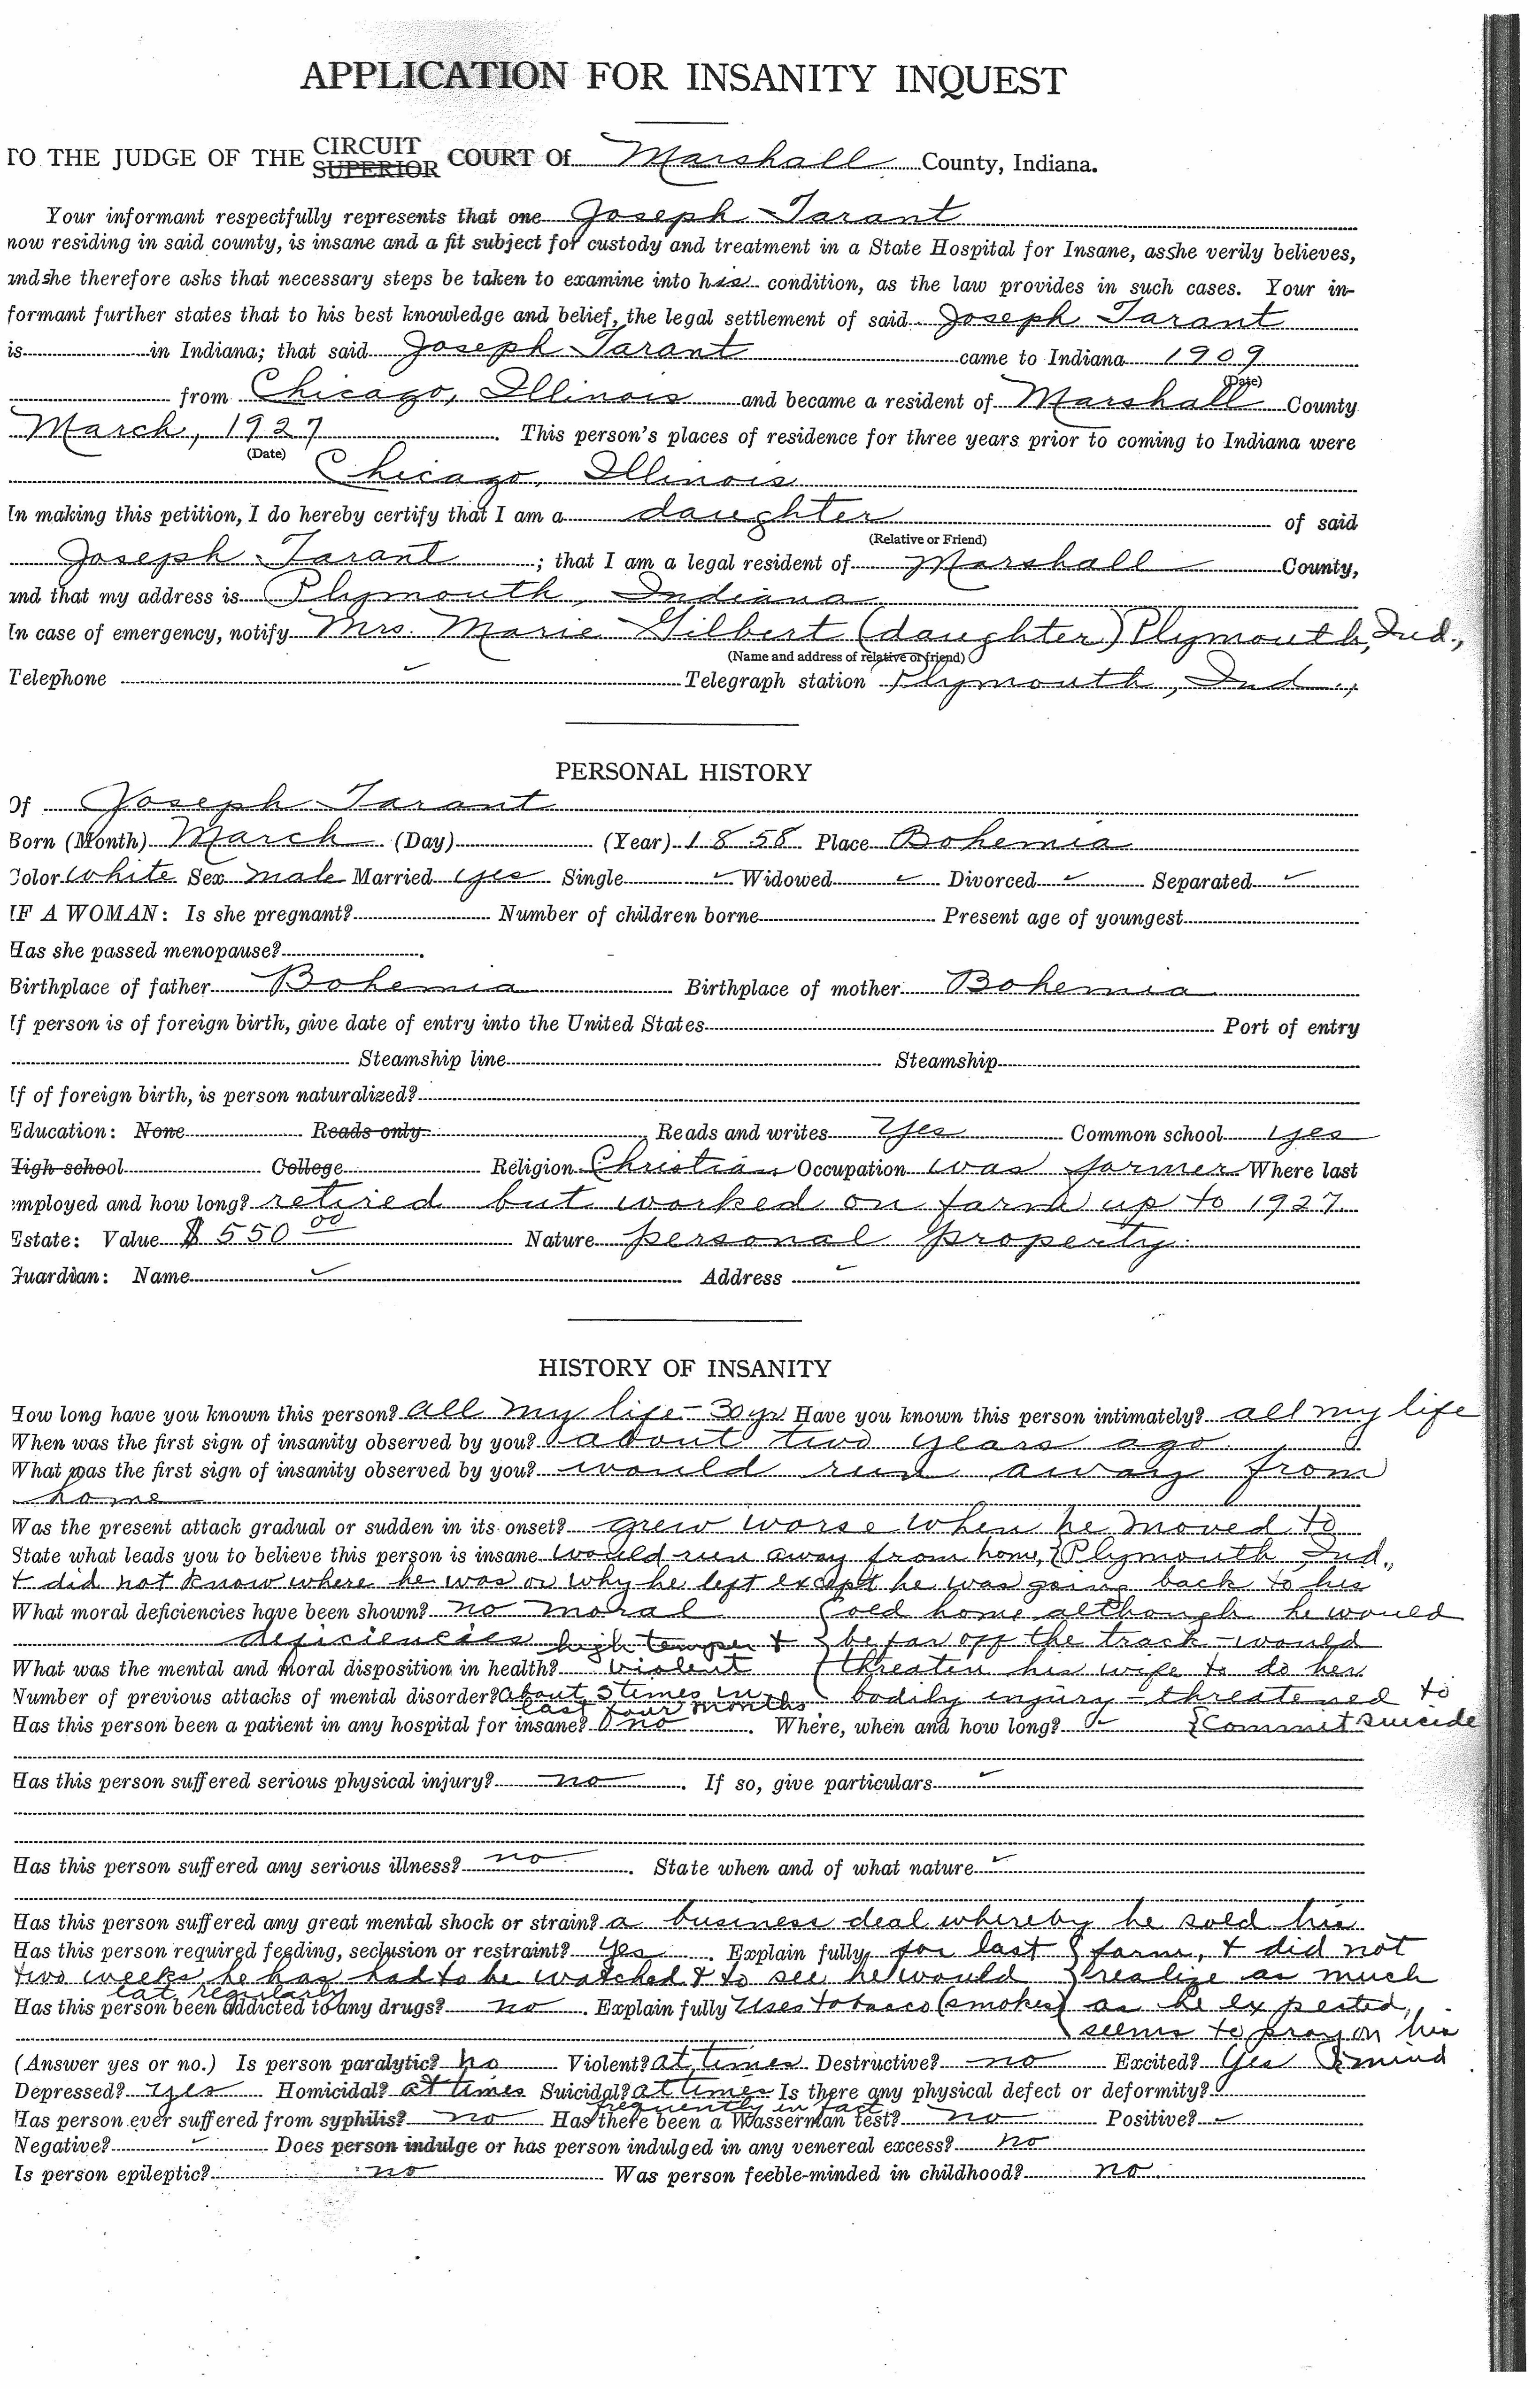 APPLICATION FOR INSANITY INQUEST
TO THE JUDGE OF THE CIRCUIT SUPERIOR COURT OF Marshall County, Indiana.
Your informant respectfully represents that one Joseph Tarant
now residing in said county, is insane and a fit subject for custody and treatment in a State Hospital for Insane, as she verily believes,
and she therefore asks that necessary steps be taken to examine into his condition, as the law provides in such cases. Your in-
formant further states that to his best knowledge and belief, the legal settlement of said Joseph Tarant
is in Indiana; that said Joseph Tarant came to Indiana 1909
(Date)
from Chicago, Illinois and became a resident of Marshall County
March, 1927. This person's places of residence for three years prior to coming to Indiana were
(Date)
Chicago, Illinois
In making this petition, I do hereby certify that I am a daughter of said
(Relative or Friend)
Joseph Tarant; that I am a legal resident of Marshall County,
and that my address is Plymouth, Indiana
In case of emergency, notify Mrs. Marie Gilbert (daughter) Plymouth, Ind.,
(Name and address of relative or friend)
Telephone Telegraph station Plymouth, Ind.,
PERSONAL HISTORY
Of Joseph Tarant
Born (Month) March (Day) (Year) 1858 Place Bohemia
Color white Sex male Married yes Single Widowed Divorced Separated
IF A WOMAN: Is she pregnant? Number of children borne Present age of youngest
Has she passed menopause?
Birthplace of father Bohemia Birthplace of mother Bohemia
If person is of foreign birth, give date of entry into the United States Port of entry
Steamship line Steamship
If of foreign birth, is person naturalized?
Education: None Reads only Reads and writes Yes Common school yes
High school College Religion Christian Occupation was farmer Where last
employed and how long? retired but worked on farm up to 1927.
Estate: Value $550 00 Nature personal property.
Guardian: Name Address
HISTORY OF INSANITY
How long have you known this person? all my life - 30 yr Have you known this person intimately? all my life
When was the first sign of insanity observed by you? about two years ago.
What was the first sign of insanity observed by you? would run away from
home
Was the present attack gradual or sudden in its onset? grew worse when he moved to
State what leads you to believe this person is insane would run away from home, { Plymouth, Ind.,
+ did not know where he was or why he left except he was going back to his
What moral deficiencies have been shown? no moral { old home although he would
deficiencies high temper + { be far off the track - would
What was the mental and moral disposition in health? violent { threaten his wife to do her
Number of previous attacks of mental disorder? about 3 times in last four months. bodily injury - threatened to
Has this person been a patient in any hospital for insane? no. Where, when and how long? { commit suicide
Has this person suffered serious physical injury? no. If so, give particulars
Has this person suffered any serious illness? no. State when and of what nature
Has this person suffered any great mental shock or strain? a business deal whereby he sold his
Has this person required feeding, seclusion or restraint? Yes. Explain fully, for last { farm, + did not
two weeks he has had to be watched + to see he would { realize as much
eat regularly
Has this person been addicted to any drugs? no. Explain fully Uses tobacco (smokes) as he expected,
{ seems to pray on his
(Answer yes or no.) Is person paralytic? no Violent? at times Destructive? no Excited? Yes { mind
Depressed? yes Homicidal? at times Suicidal? at times Is there any physical defect or deformity?
frequently in fact
Has person ever suffered from syphilis? no Has there been a Wasserman test? no Positive?
Negative? Does person indulge or has person indulged in any venereal excess? no
Is person epileptic? no Was person feeble-minded in childhood? no.